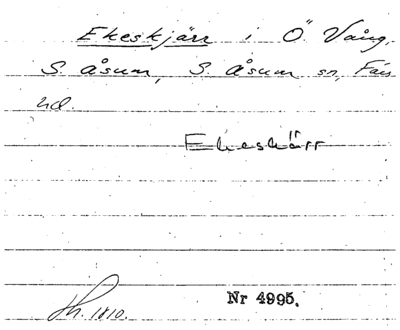 Ekeskjärr i Ö. Vång,
S. åsum, S. åsum sn, Färs
hd.
Ekeskärr
Hh. 1810.
Nr 4995.